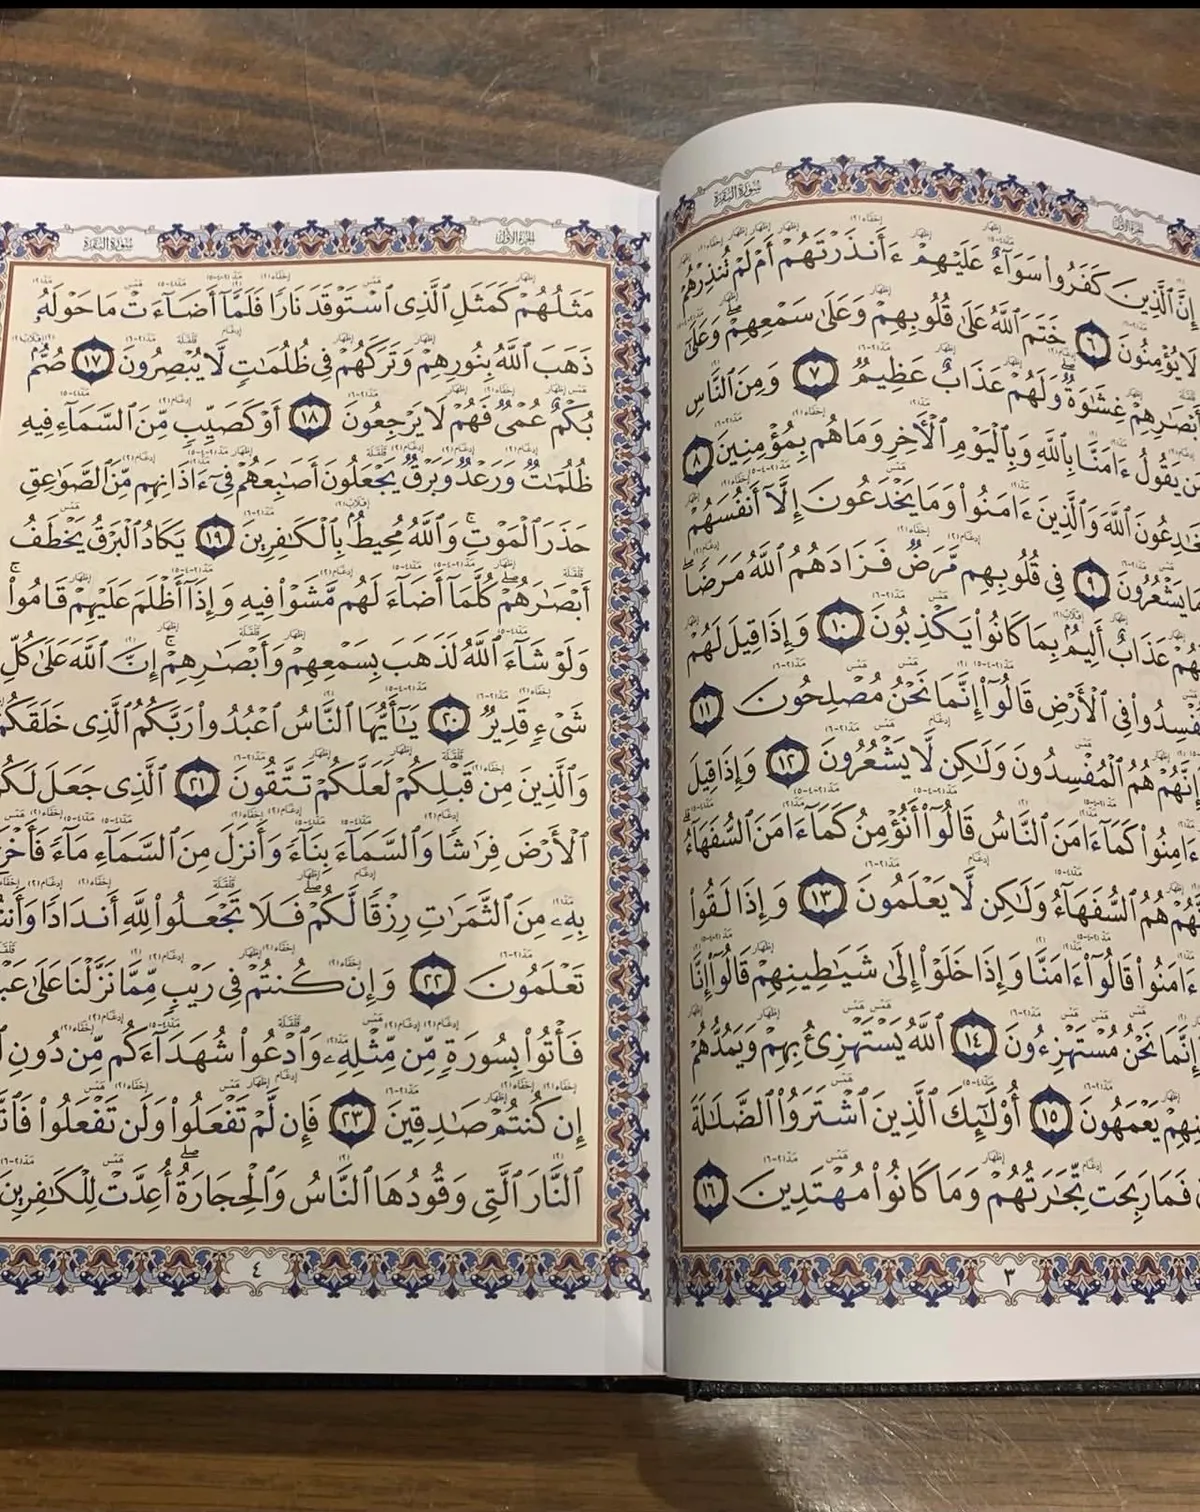 سُورَةُ البَقَرَةِ
الجُزءُ الأَوَّلُ
إِنَّ ٱلَّذِينَ كَفَرُوا۟ سَوَآءٌ عَلَيْهِمْ ءَأَنذَرْتَهُمْ أَمْ لَمْ تُنذِرْهُمْ
لَا يُؤْمِنُونَ ٦ خَتَمَ ٱللَّهُ عَلَىٰ قُلُوبِهِمْ وَعَلَىٰ سَمْعِهِمْ ۖ وَعَلَىٰٓ
أَبْصَـٰرِهِمْ غِشَـٰوَةٌ ۖ وَلَهُمْ عَذَابٌ عَظِيمٌ ٧ وَمِنَ ٱلنَّاسِ
مَن يَقُولُ ءَامَنَّا بِٱللَّهِ وَبِٱلْيَوْمِ ٱلْـَٔاخِرِ وَمَا هُم بِمُؤْمِنِينَ ٨
يُخَـٰدِعُونَ ٱللَّهَ وَٱلَّذِينَ ءَامَنُوا۟ وَمَا يَخْدَعُونَ إِلَّآ أَنفُسَهُمْ
وَمَا يَشْعُرُونَ ٩ فِى قُلُوبِهِم مَّرَضٌ فَزَادَهُمُ ٱللَّهُ مَرَضًا ۖ
وَلَهُمْ عَذَابٌ أَلِيمٌۢ بِمَا كَانُوا۟ يَكْذِبُونَ ١٠ وَإِذَا قِيلَ لَهُمْ
تُفْسِدُوا۟ فِى ٱلْأَرْضِ قَالُوٓا۟ إِنَّمَا نَحْنُ مُصْلِحُونَ ١١
إِنَّهُمْ هُمُ ٱلْمُفْسِدُونَ وَلَـٰكِن لَّا يَشْعُرُونَ ١٢ وَإِذَا قِيلَ
ءَامِنُوا۟ كَمَآ ءَامَنَ ٱلنَّاسُ قَالُوٓا۟ أَنُؤْمِنُ كَمَآ ءَامَنَ ٱلسُّفَهَآءُ ۗ
إِنَّهُمْ هُمُ ٱلسُّفَهَآءُ وَلَـٰكِن لَّا يَعْلَمُونَ ١٣ وَإِذَا لَقُوا۟
ءَامَنُوا۟ قَالُوٓا۟ ءَامَنَّا وَإِذَا خَلَوْا۟ إِلَىٰ شَيَـٰطِينِهِمْ قَالُوٓا۟ إِنَّا
إِنَّمَا نَحْنُ مُسْتَهْزِءُونَ ١٤ ٱللَّهُ يَسْتَهْزِئُ بِهِمْ وَيَمُدُّهُمْ
طُغْيَـٰنِهِمْ يَعْمَهُونَ ١٥ أُو۟لَـٰٓئِكَ ٱلَّذِينَ ٱشْتَرَوُا۟ ٱلضَّلَـٰلَةَ
فَمَا رَبِحَت تِّجَـٰرَتُهُمْ وَمَا كَانُوا۟ مُهْتَدِينَ ١٦
٣
الجُزءُ الأَوَّلُ
سُورَةُ البَقَرَةِ
مَثَلُهُمْ كَمَثَلِ ٱلَّذِى ٱسْتَوْقَدَ نَارًا فَلَمَّآ أَضَآءَتْ مَا حَوْلَهُۥ
ذَهَبَ ٱللَّهُ بِنُورِهِمْ وَتَرَكَهُمْ فِى ظُلُمَـٰتٍ لَّا يُبْصِرُونَ ١٧ صُمٌّۢ
بُكْمٌ عُمْىٌ فَهُمْ لَا يَرْجِعُونَ ١٨ أَوْ كَصَيِّبٍ مِّنَ ٱلسَّمَآءِ فِيهِ
ظُلُمَـٰتٌ وَرَعْدٌ وَبَرْقٌ يَجْعَلُونَ أَصَـٰبِعَهُمْ فِىٓ ءَاذَانِهِم مِّنَ ٱلصَّوَٰعِقِ
حَذَرَ ٱلْمَوْتِ ۚ وَٱللَّهُ مُحِيطٌۢ بِٱلْكَـٰفِرِينَ ١٩ يَكَادُ ٱلْبَرْقُ يَخْطَفُ
أَبْصَـٰرَهُمْ ۖ كُلَّمَآ أَضَآءَ لَهُم مَّشَوْا۟ فِيهِ وَإِذَآ أَظْلَمَ عَلَيْهِمْ قَامُوا۟ ۚ
وَلَوْ شَآءَ ٱللَّهُ لَذَهَبَ بِسَمْعِهِمْ وَأَبْصَـٰرِهِمْ ۚ إِنَّ ٱللَّهَ عَلَىٰ كُلِّ
شَىْءٍ قَدِيرٌ ٢٠ يَـٰٓأَيُّهَا ٱلنَّاسُ ٱعْبُدُوا۟ رَبَّكُمُ ٱلَّذِى خَلَقَكُمْ
وَٱلَّذِينَ مِن قَبْلِكُمْ لَعَلَّكُمْ تَتَّقُونَ ٢١ ٱلَّذِى جَعَلَ لَكُمُ
ٱلْأَرْضَ فِرَٰشًا وَٱلسَّمَآءَ بِنَآءً وَأَنزَلَ مِنَ ٱلسَّمَآءِ مَآءً فَأَخْرَجَ
بِهِۦ مِنَ ٱلثَّمَرَٰتِ رِزْقًا لَّكُمْ ۖ فَلَا تَجْعَلُوا۟ لِلَّهِ أَندَادًا وَأَنتُمْ
تَعْلَمُونَ ٢٢ وَإِن كُنتُمْ فِى رَيْبٍ مِّمَّا نَزَّلْنَا عَلَىٰ عَبْدِنَا
فَأْتُوا۟ بِسُورَةٍ مِّن مِّثْلِهِۦ وَٱدْعُوا۟ شُهَدَآءَكُم مِّن دُونِ
إِن كُنتُمْ صَـٰدِقِينَ ٢٣ فَإِن لَّمْ تَفْعَلُوا۟ وَلَن تَفْعَلُوا۟ فَٱتَّقُوا۟
ٱلنَّارَ ٱلَّتِى وَقُودُهَا ٱلنَّاسُ وَٱلْحِجَارَةُ ۖ أُعِدَّتْ لِلْكَـٰفِرِينَ
٤